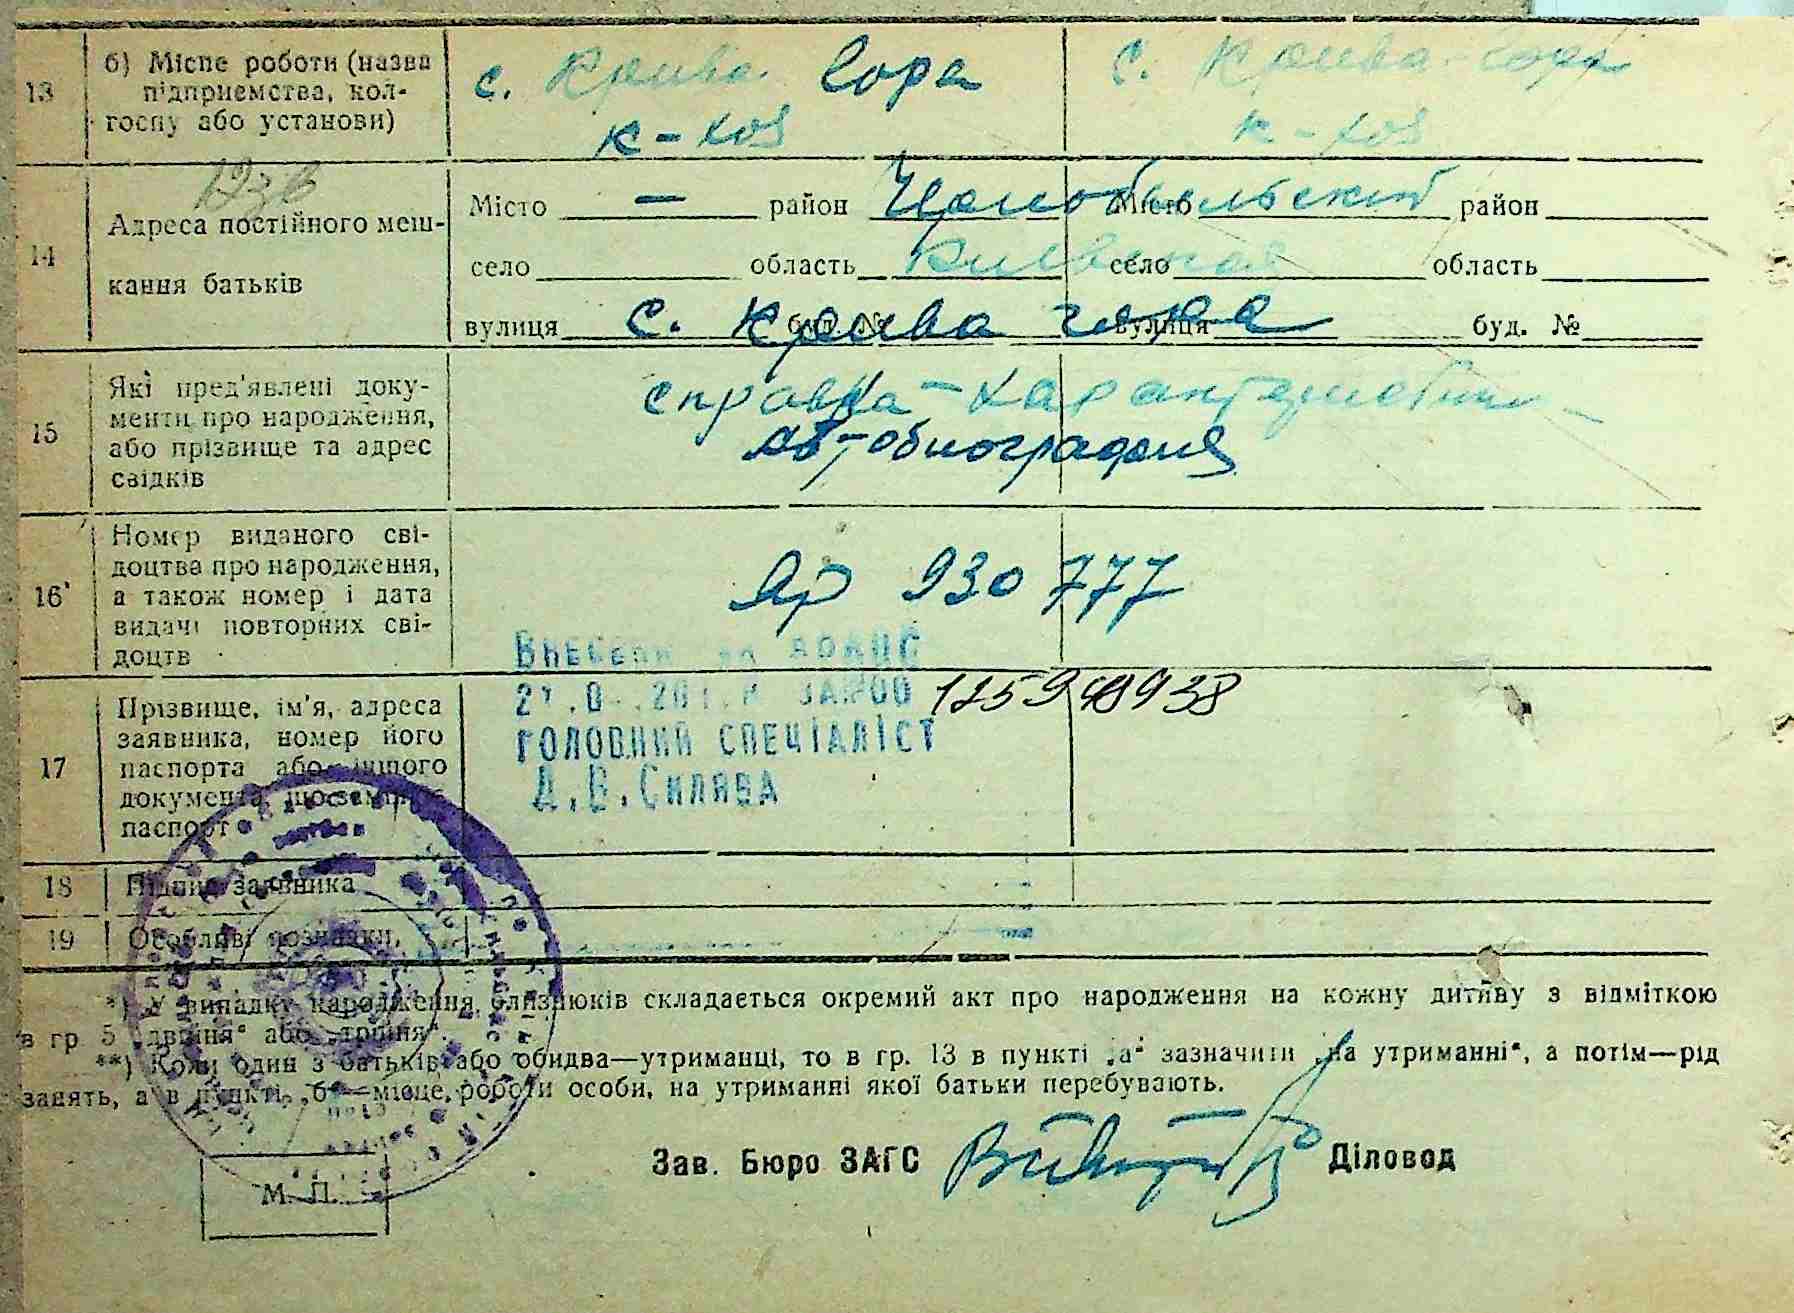 13 б) Місце роботи (назва с. Крива Гора с. Крива-Гора
підприємства, кол-
госпу або установи) к-хоз к-хоз
14 Адреса постійного меш- Місто — район Чернобыльский Місто район
кання батьків село область Киевская село область
вулиця с. Крива гора буд. № вулиця буд. №
15 Які пред'явлені доку- справка-характеристика
менти про народження, автобиография
або прізвище та адрес
свідків
16 Номер виданого сві-
доцтва про народження,
а також номер і дата ЯР 930777
видачі повторних сві-
доцтв Внесено до ДРАЦС
17 Прізвище, ім'я, адреса за №00 12594938
заявника, номер його ГОЛОВНИЙ СПЕЦІАЛІСТ
паспорта або іншого Д.В.Силява
документа, що заміняє
паспорт
18 Підпис заявника
19 Особливі позначки.
*) У випадку народження близнюків складається окремий акт про народження на кожну дитину з відміткою
в гр 5 „двійня“ або „трійня“.
**) Коли один з батьків або обидва—утриманці, то в гр. 13 в пункті „а“ зазначити „на утриманні“, а потім—рід
занять, а в пункті „б“—місце роботи особи, на утриманні якої батьки перебувають.
Зав. Бюро ЗАГС Діловод
М. П.